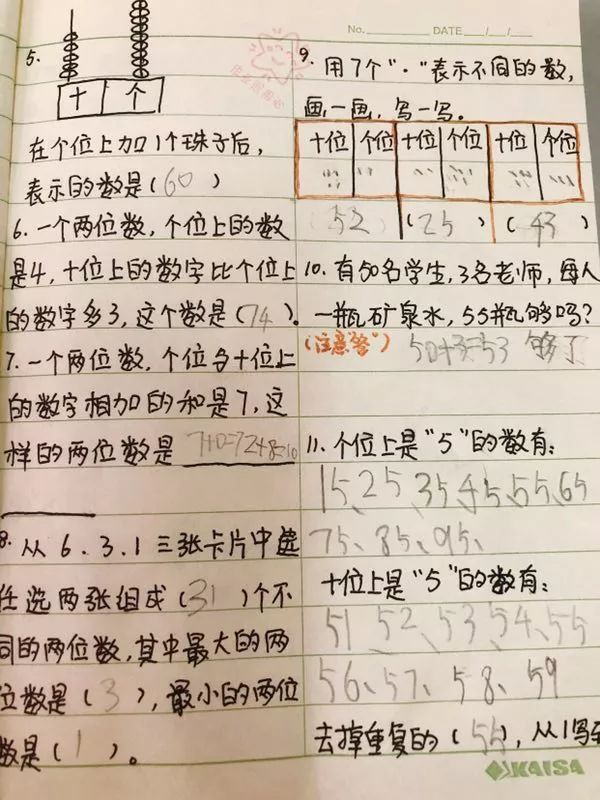 No.
DATE / /
5.
十 个
在个位上加1个珠子后,
表示的数是(60)
6. 一个两位数,个位上的数
是4,十位上的数字比个位上
的数字多3,这个数是(74)。
7. 一个两位数,个位与十位上
的数字相加的和是7,这
样的两位数是
8. 从 6.3.1 三张卡片中选
任选两张组成(31)个不
同的两位数,其中最大的两
位数是(3),最小的两位
数是(1)。
9. 用7个"·"表示不同的数,
画一画,写一写。
十位 个位 十位 个位 十位 个位
52 (25) (43)
10. 有50名学生,3名老师,每人
一瓶矿泉水,55瓶够吗?
(注意"答") 50+3=53 够了
11. 个位上是"5"的数有:
15、25、35、45、55、65
75、85、95、
十位上是"5"的数有:
51、52、53、54、55
56、57、58、59
去掉重复的(55),从1写
KAISA